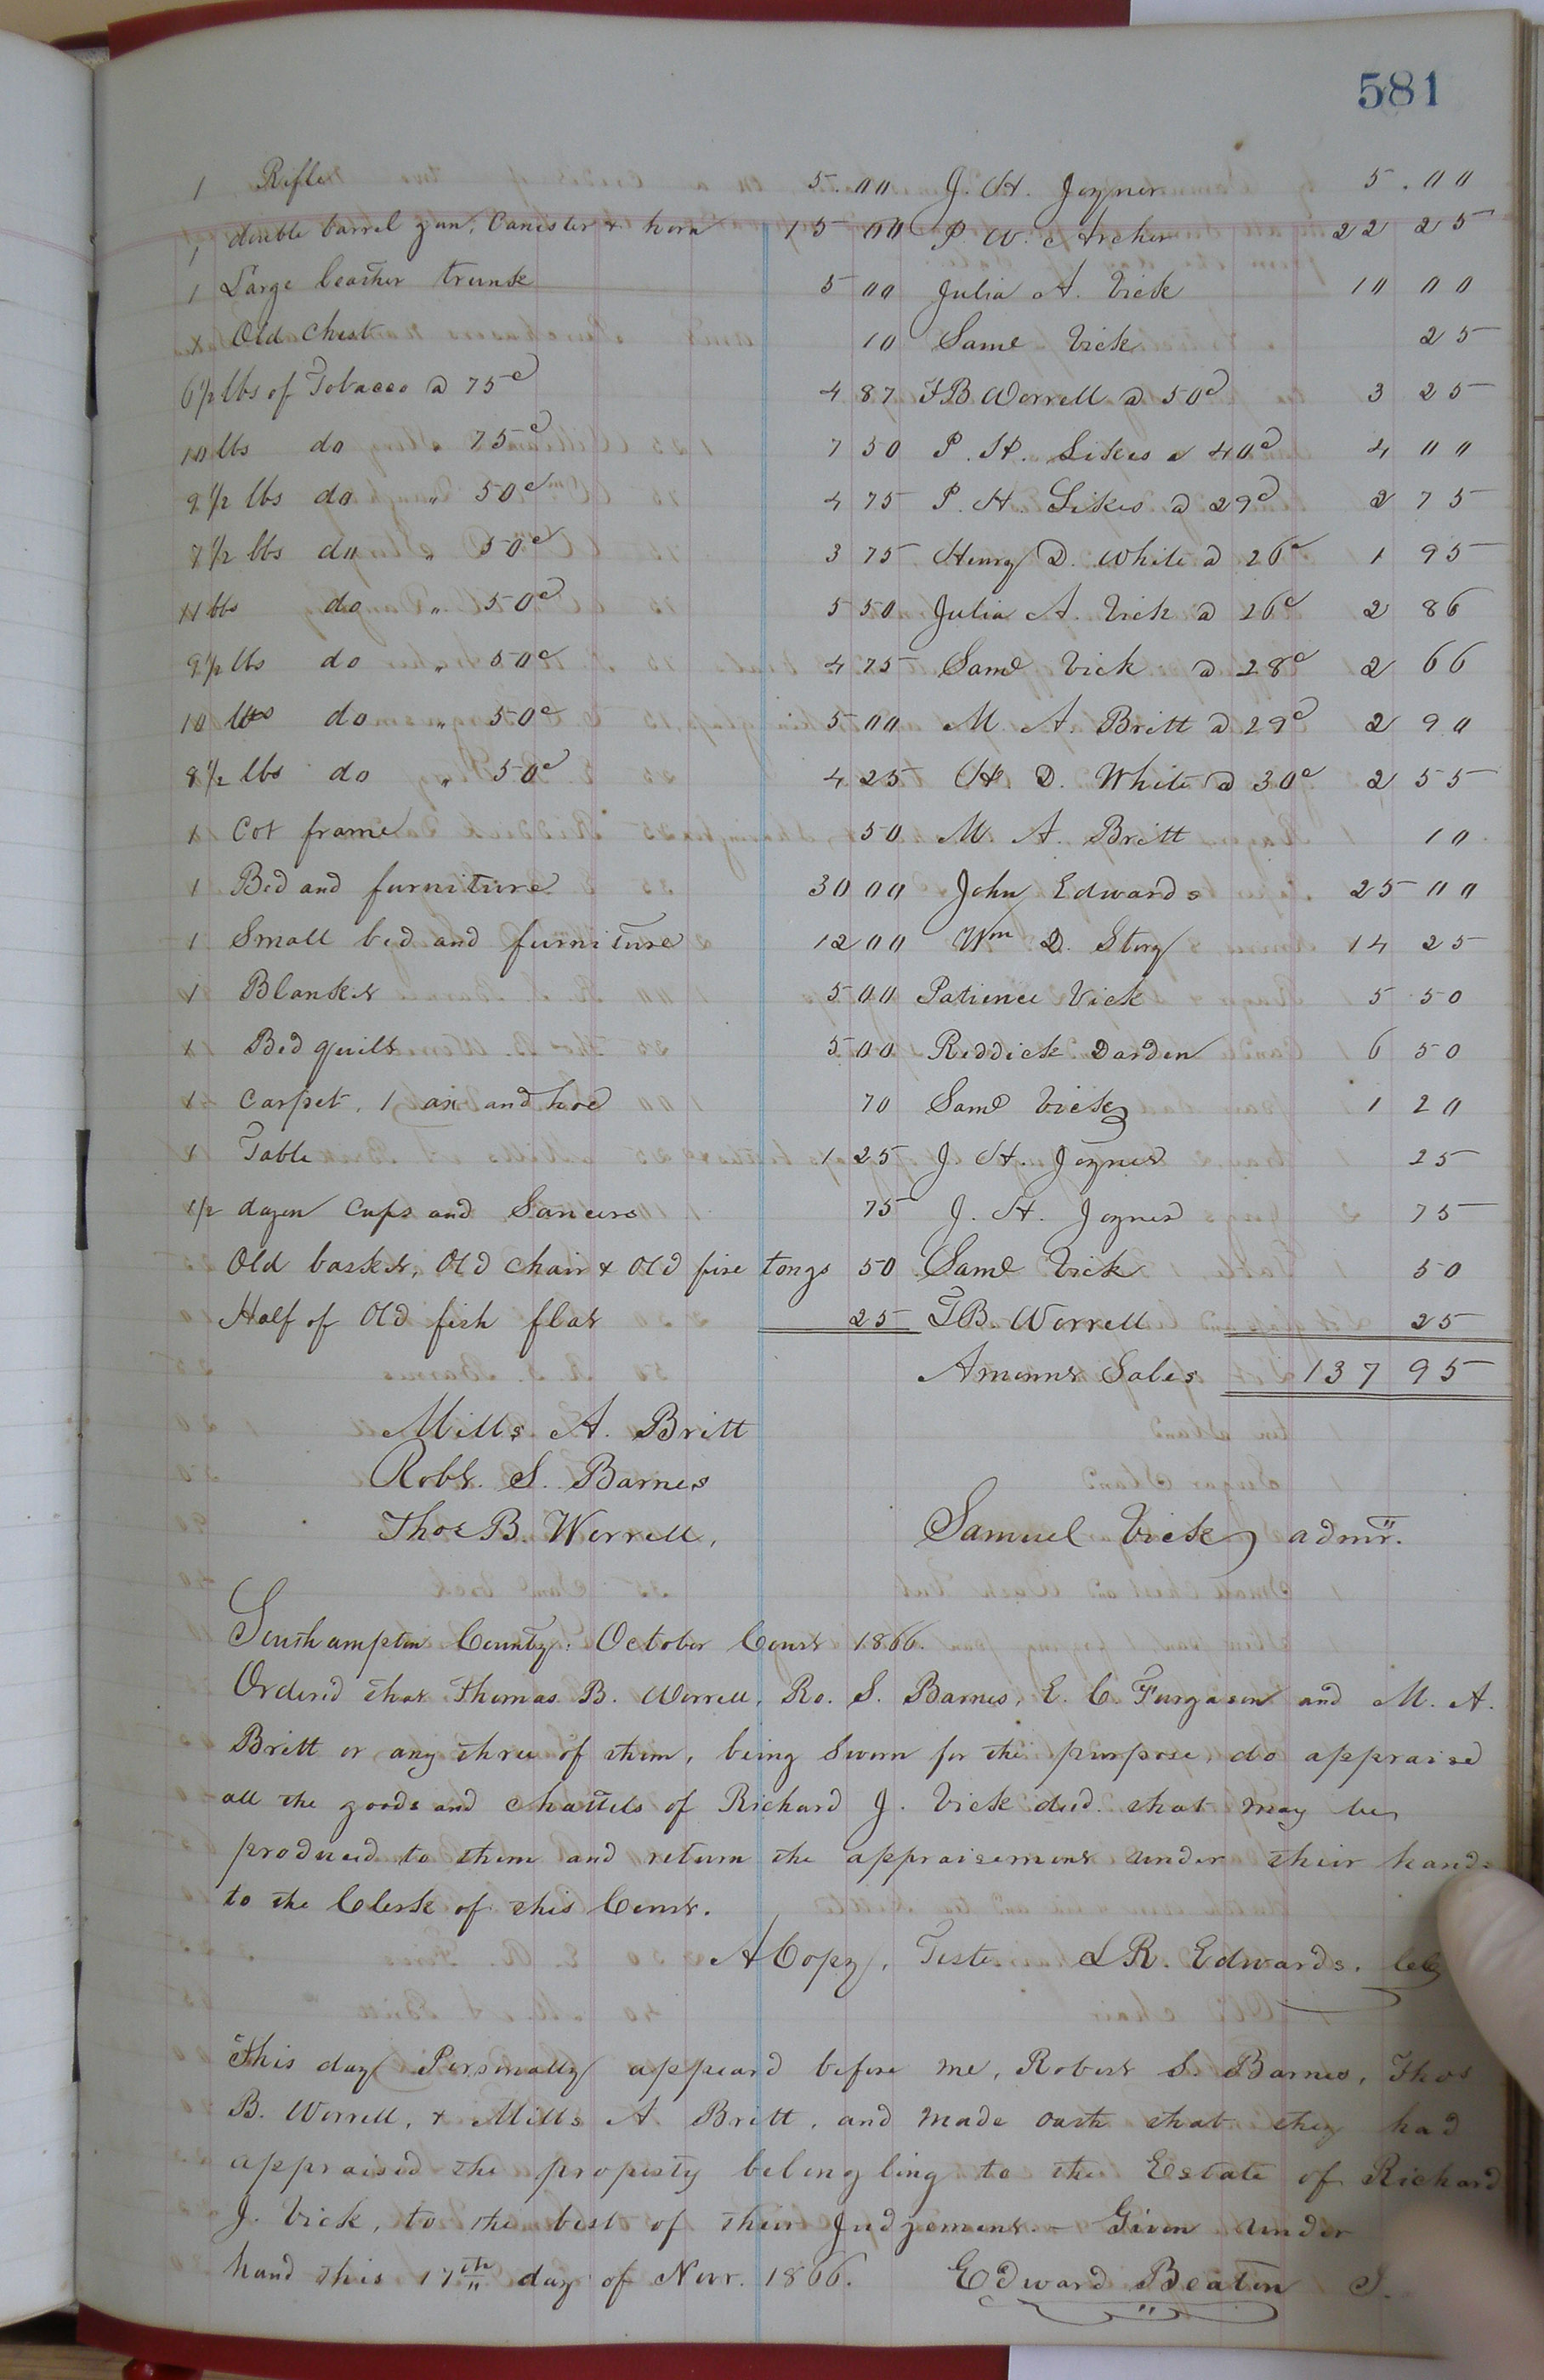 581
1 Rifle 5.00 J. H. Joyner 5.00
1 double barrel gun, Canister & horn 15 00 P. W. Archer 22 25
1 Large leather trunk 5 00 Julia A. Vick 10 00
1 Old Chest 10 Saml Vick 25
6 1/2 lbs of Tobacco @ 75c 4 87 T B Worrell @ 50c 3 25
10 lbs do 75c 7 50 P. H. Likes @ 40c 4 00
9 1/2 lbs do " 50c 4 75 P. H Likes @ 29c 2 75
7 1/2 lbs do " 50c 3 75 Henry D. White @ 26c 1 95
11 lbs do " 50c 5 50 Julia A. Vick @ 26c 2 86
9 1/2 lbs do " 50c 4 75 Saml Vick @ 28c 2 66
10 lbs do " 50c 5 00 M. A. Britt @ 29c 2 90
8 1/2 lbs do " 50c 4 25 H. D. White @ 30c 2 55
1 Cot frame 50 M. A. Britt 10
1 Bed and furniture 30 00 John Edwards 25 00
1 Small bed and furniture 12 00 Wm D. Story 14 25
1 Blanket 5 00 Patience Vick 5 50
1 Bed quilt 5 00 Reddick Darden 6 50
1 Carpet, 1 ax and hoe 70 Saml Vick 1 20
1 Table 1 25 J. H. Joyner 25
1/2 dozen Cups and Saucers 75 J. H. Joyner 75
Old basket, Old Chair & Old fire tongs 50 Saml Vick 50
Half of Old fish flat 25 T B. Worrell 25
Amount Sales 137 95
Mills A. Britt
Robt. S. Barnes
Thos B. Worrell,
Samuel Vick admr.
Southampton County: October Court 1866.
Ordered that Thomas B. Worrell, Ro. S. Barnes, E. C. Furgason and M. A.
Britt or any three of them, being Sworn for the purpose, do appraise
all the goods and chattels of Richard J. Vick decd. that may be
produced to them and return the appraisement under their hands
to the Clerk of this Court.
A Copy, Teste L R. Edwards, Clk
This day Personally appeard before me, Robert S. Barnes, Thos
B. Worrell, & Mills A Britt, and made oath that they had
appraised the property belongling to the Estate of Richard
J. Vick, to the best of their Judgement. – Given under
hand this 17th day of Novr. 1866. Edward Beaton J.